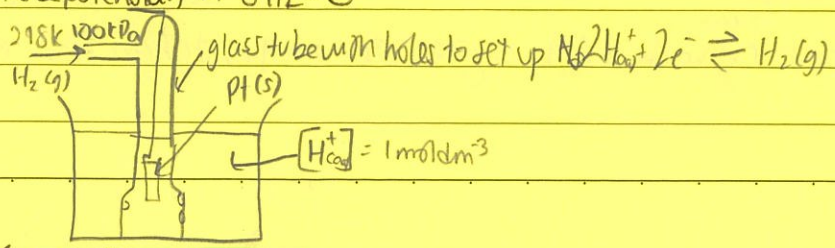 298K 100kPa
H₂(g)
glass tube with holes to set up 2H⁺(aq) + 2e⁻ ⇌ H₂(g)
Pt(s)
[H⁺(aq)] = 1moldm⁻³